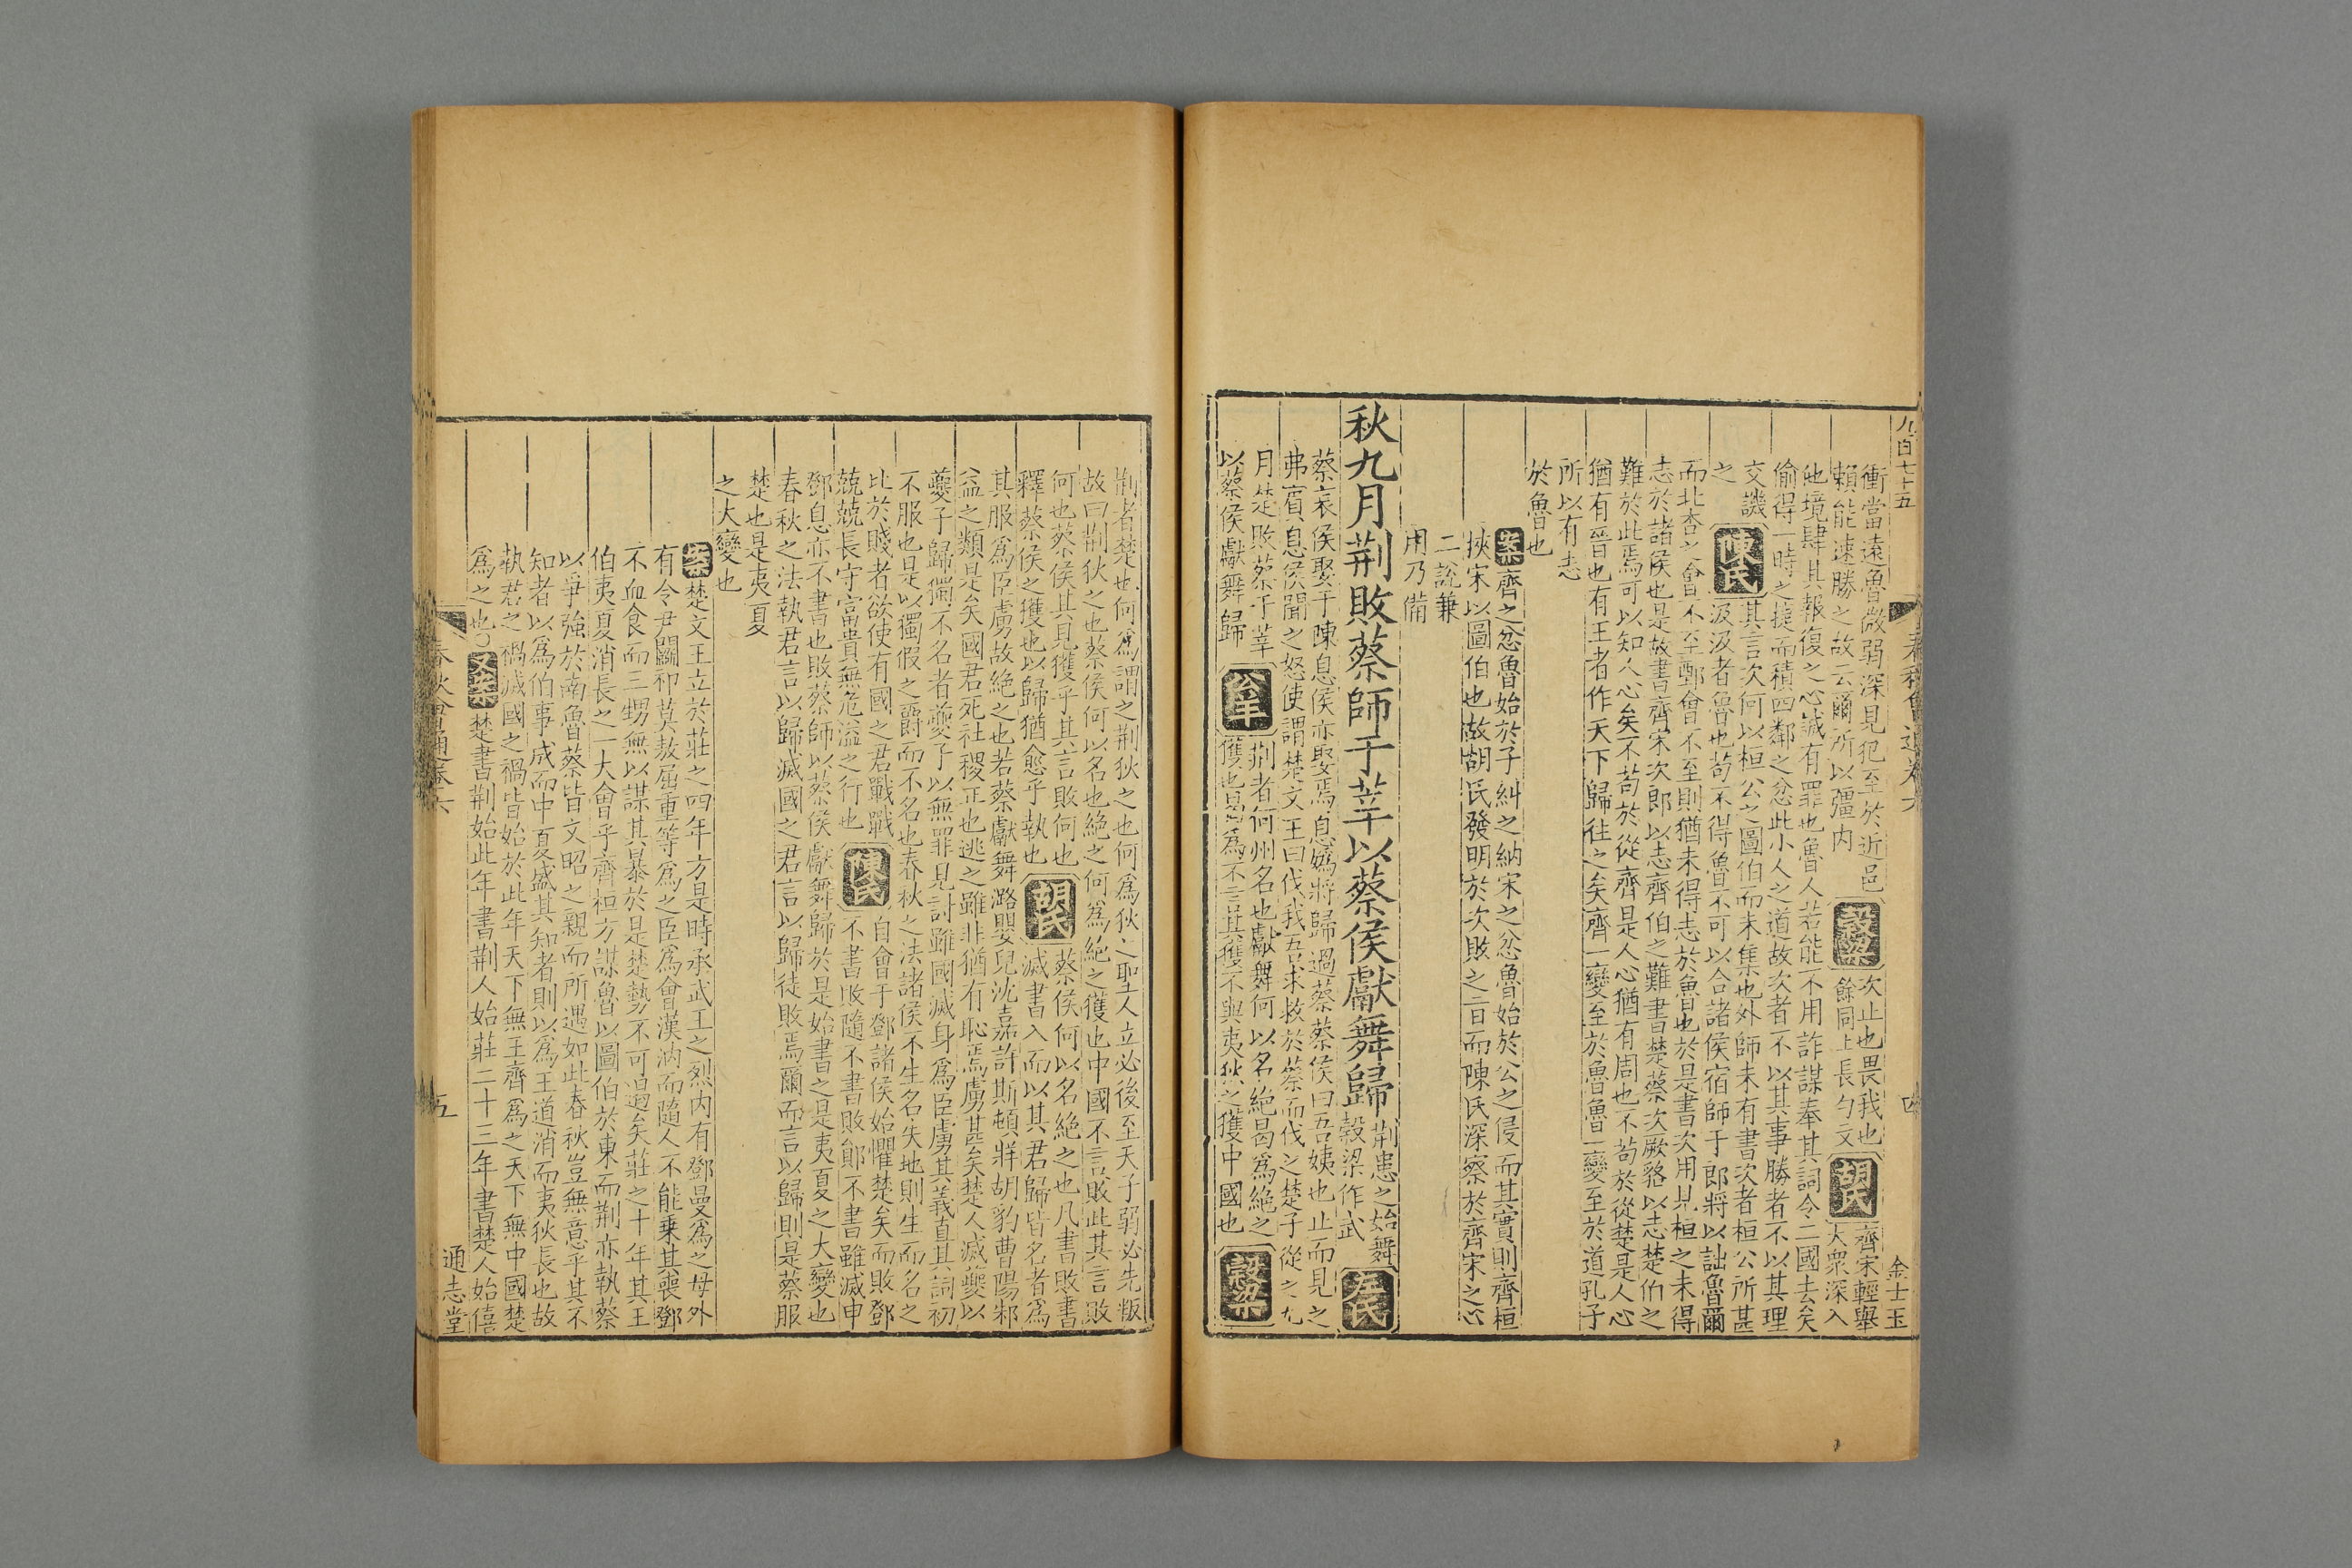 八百七十五
金士玉
衝當遠魯微弱深見犯至於近邑
賴能速勝之故云爾所以彊內
穀梁
次止也畏我也
餘同上長勺文
胡氏
齊宋輕舉
大衆深入
他境肆其報復之心誠有罪也魯人若能不用詐謀奉其詞令二國去矣
偷得一時之捷而積四鄰之忿此小人之道故次者不以其事勝者不以其理
交譏
之
陳氏
其言次何以桓公之圖伯而未集也外師未有書次者桓公所甚
汲汲者魯也苟不得魯不可以合諸侯宿師于郎將以詘魯爾
而北杏之會不至鄄會不至則猶未得志於魯也於是書次用見桓之未得
志於諸侯也是故書齊宋次郎以志齊伯之難書楚蔡次厥貉以志楚伯之
難於此焉可以知人心矣不苟於從齊是人心猶有周也不苟於從楚是人心
猶有晉也有王者作天下歸往之矣齊一變至於魯魯一變至於道孔子
所以有志
於魯也
案
齊之忿魯始於子糾之納宋之忿魯始於公之侵而其實則齊桓
挾宋以圖伯也故胡氏發明於次敗之二旨而陳氏深察於齊宋之心
二說兼
用乃備
秋九月荆敗蔡師于莘以蔡侯獻舞歸
荆患之始舞
穀梁作武
左氏
蔡哀侯娶于陳息侯亦娶焉息嬀將歸過蔡蔡侯曰吾姨也止而見之
弗賓息侯聞之怒使謂楚文王曰伐我吾求救於蔡而伐之楚子從之九
月楚敗蔡于莘
以蔡侯獻舞歸
公羊
荆者何州名也獻舞何以名絕曷爲絕之
獲也曷爲不言其獲不與夷狄之獲中國也
穀梁
荆者楚也何爲謂之荆狄之也何爲狄之聖人立必後至天子弱必先叛
故曰荆狄之也蔡侯何以名也絕之何爲絕之獲也中國不言敗此其言敗
何也蔡侯其見獲乎其言敗何也
釋蔡侯之獲也以歸猶愈乎執也
胡氏
蔡侯何以名絕之也凡書敗書
滅書入而以其君歸皆名者爲
其服爲臣虜故絕之也若蔡獻舞潞嬰兒沈嘉許斯頓牂胡豹曹陽邾
益之類是矣國君死社稷正也逃之雖非猶有恥焉虜甚矣楚人滅夔以
夔子歸獨不名者夔子以無罪見討雖國滅身爲臣虜其義直其詞初
不服也是以獨假之爵而不名也春秋之法諸侯不生名失地則生而名之
比於賤者欲使有國之君戰戰
兢兢長守富貴無危溢之行也
陳氏
自會于鄧諸侯始懼楚矣而敗鄧
不書敗隨不書敗鄖不書雖滅申
鄧息亦不書也敗蔡師以蔡侯獻舞歸於是始書之是夷夏之大變也
春秋之法執君言以歸滅國之君言以歸徒敗焉爾而言以歸則是蔡服
楚也是夷夏
之大變也
案
楚文王立於莊之四年方是時承武王之烈內有鄧曼爲之母外
有令尹鬭祁莫敖屈重等爲之臣爲會漢汭而隨人不能乗其喪鄧
不血食而三甥無以謀其暴於是楚勢不可遏矣莊之十年其王
伯夷夏消長之一大會乎齊桓方謀魯以圖伯於東而荆亦執蔡
以爭強於南魯蔡皆文昭之親而所遇如此春秋豈無意乎其不
知者以爲伯事成而中夏盛其知者則以爲王道消而夷狄長也故
執君之禍滅國之禍皆始於此年天下無王齊爲之天下無中國楚
爲之也○
又案
楚書荆始此年書荆人始莊二十三年書楚人始僖
春秋會通卷六
五
通志堂